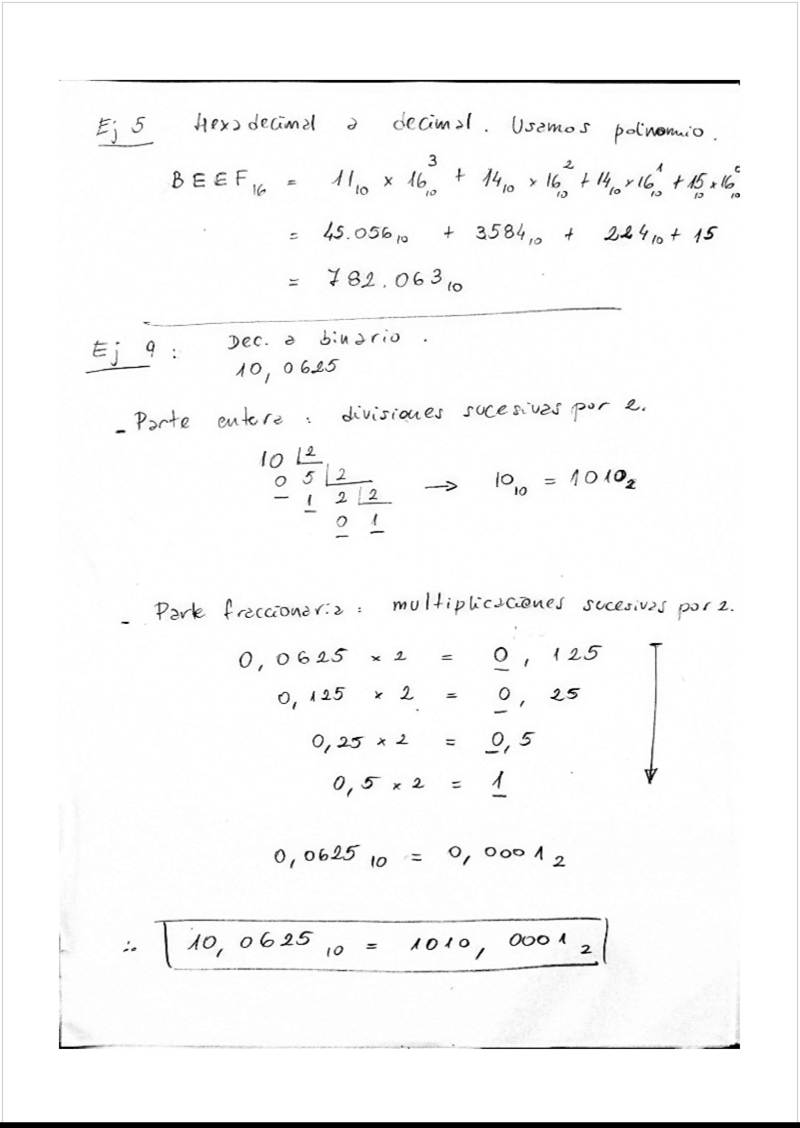 Ej 5 Hexadecimal a decimal. Usamos polinomio.
BEEF₁₆ = 11₁₀ × 16₁₀³ + 14₁₀ × 16₁₀² + 14₁₀ × 16₁₀¹ + 15₁₀ × 16₁₀⁰
= 45.056₁₀ + 3584₁₀ + 224₁₀ + 15
= 782.063₁₀
Ej 9 : Dec. a binario.
10,0625
- Parte entera : divisiones sucesivas por 2.
10 |2
0 5 |2
1 2 |2 → 10₁₀ = 1010₂
0 1
- Parte fraccionaria : multiplicaciones sucesivas por 2.
0,0625 × 2 = 0,125
0,125 × 2 = 0,25
0,25 × 2 = 0,5
0,5 × 2 = 1
0,0625₁₀ = 0,0001₂
∴ 10,0625₁₀ = 1010,0001₂